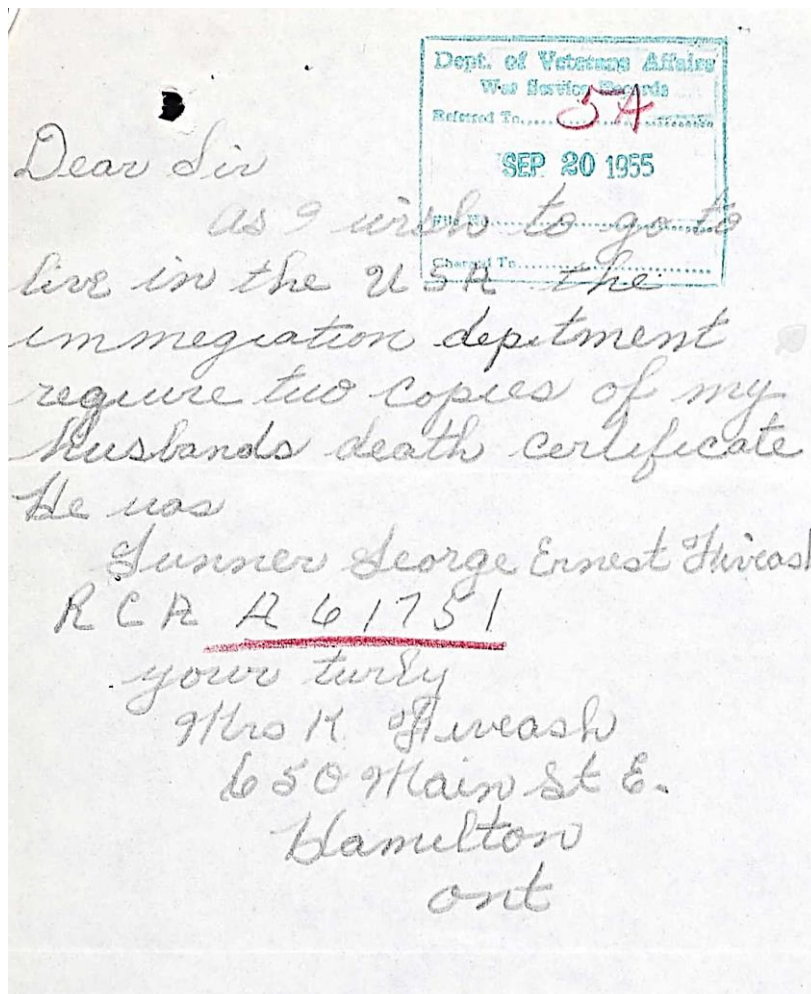 Dept. of Veterans Affairs
War Service Records
Referred To.......5A.......
SEP 20 1955
File No.......
Charged To.......
Dear Sir
as I wish to go to
live in the USA the
immegration depitment
reguire two copies of my
husbands death certificate
He was
Gunner George Ernest Fiveash
R C A A 61751
your turly
Mrs K. Fiveash
650 Main St E.
Hamilton
ont